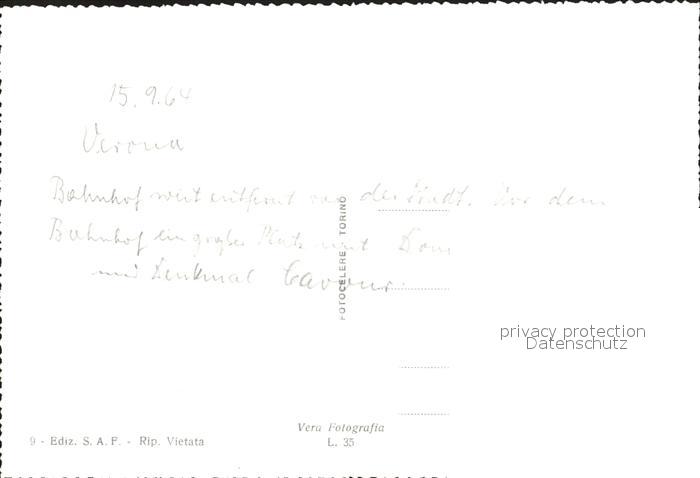 15.9.64
Verona
Bahnhof weit entfernt von der Stadt. Vor dem
Bahnhof ein großer Platz mit Dom
und Denkmal Cavour.
FOTOCELERE TORINO
privacy protection
Datenschutz
Vera Fotografia
9 - Ediz. S. A. F. - Rip. Vietata
L. 35